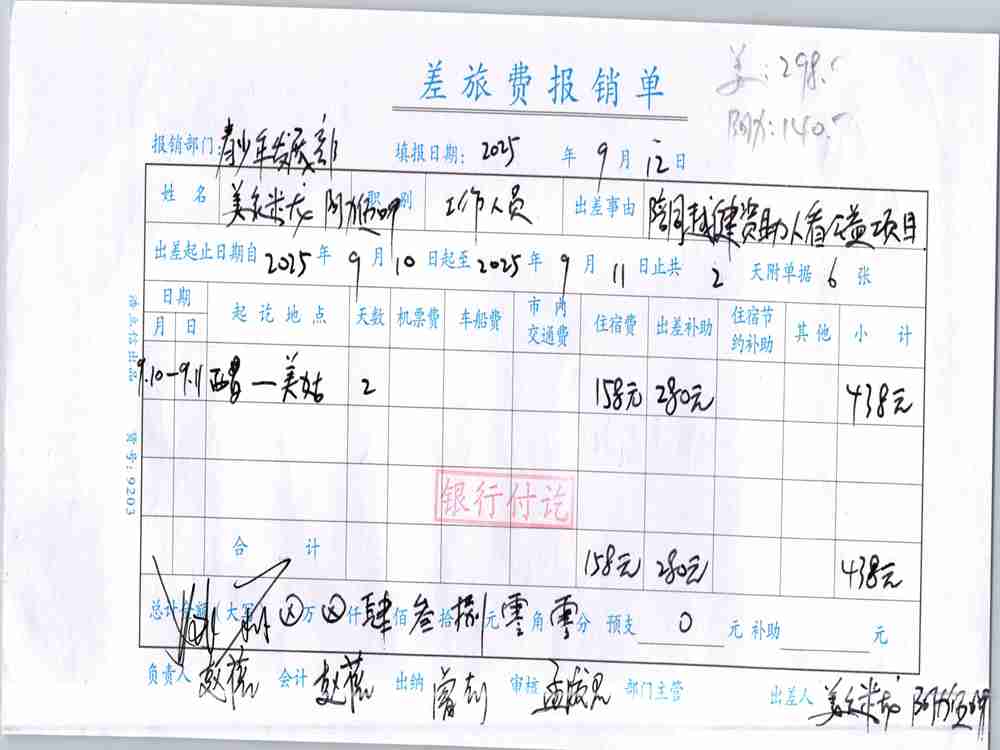 差旅费报销单
美：298.
阿力：140.
报销部门：青少年发展部 填报日期：2025 年 9 月 12 日
姓 名 美 米龙 阿力伍呷 职 别 工作人员 出差事由 陪同 捐建资助人看公益项目
出差起止日期自 2025 年 9 月 10 日起至 2025 年 9 月 11 日止共 2 天附单据 6 张
日期 起 讫 地 点 天数 机票费 车船费 市 内 交通费 住宿费 出差补助 住宿节约补助 其 他 小 计
月 日
9.10-9.11 西昌—美姑 2 158元 280元 438元
银行付讫
合 计 158元 280元 438元
总计金额(大写) ⊗万⊗仟肆佰叁拾捌元零角零分 预支 0 元 补助 元
负责人 会计 出纳 审核 部门主管 出差人 美 米龙 阿力伍呷
货号：9203